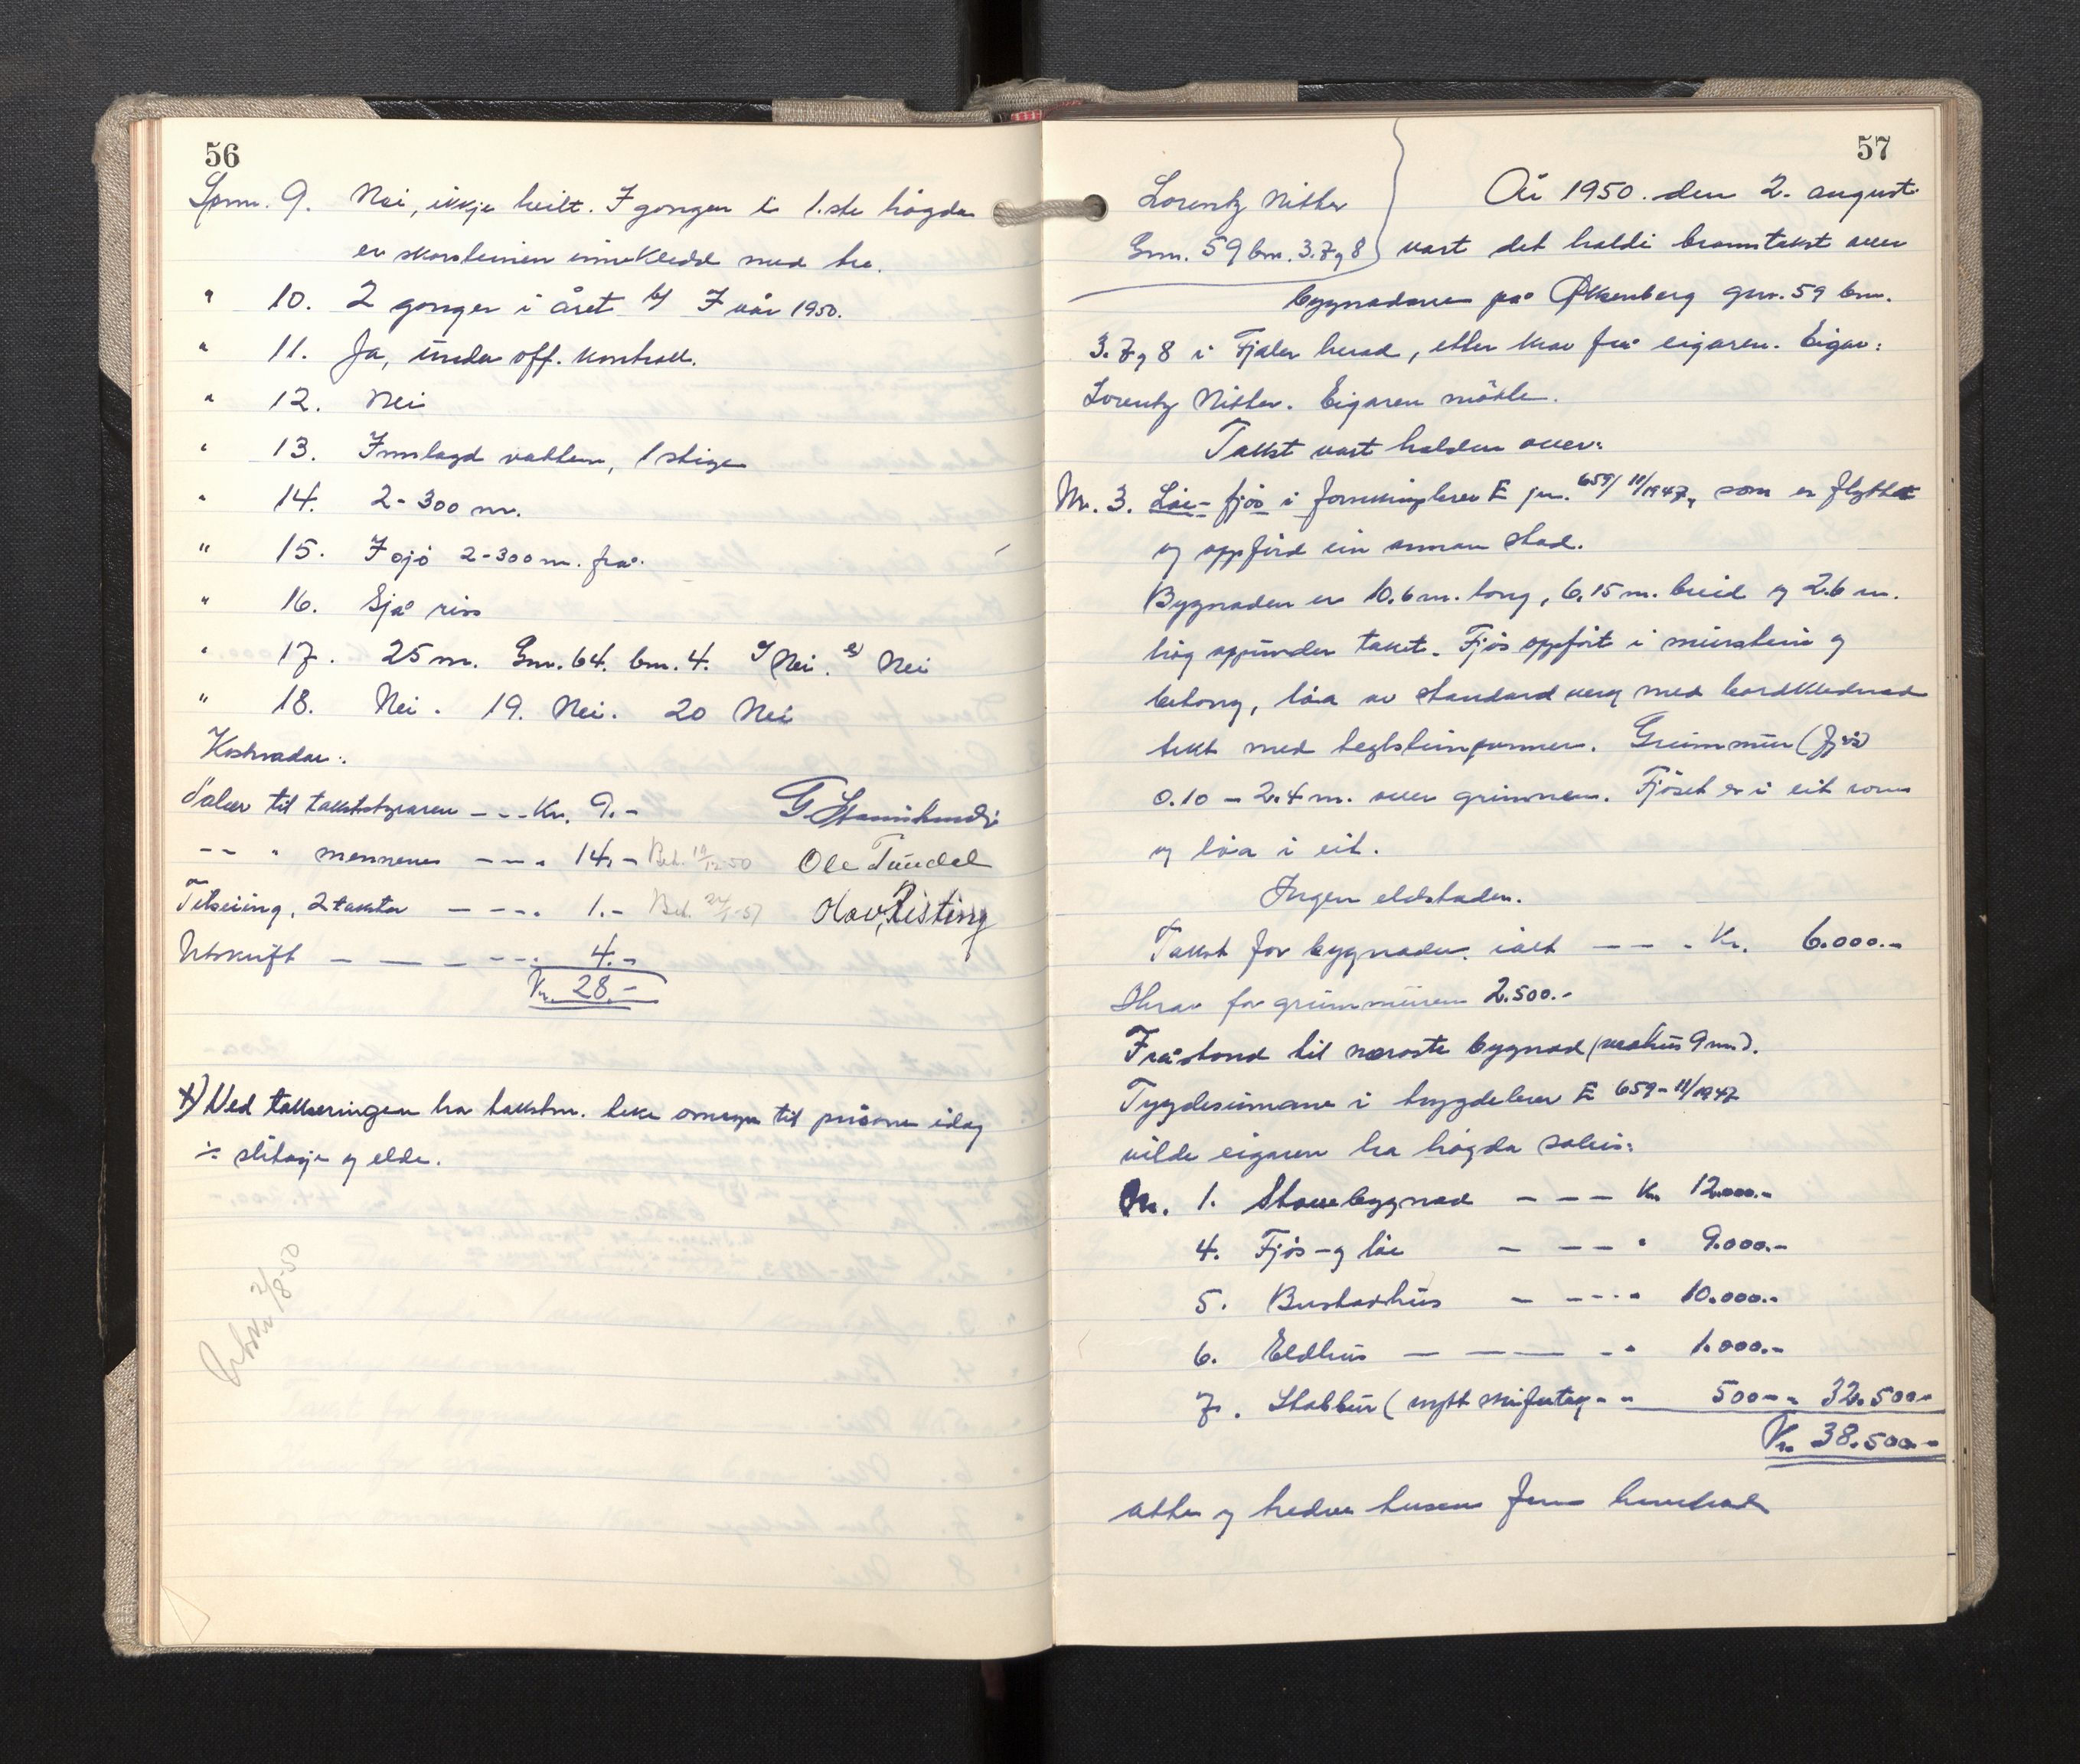 56
Spm. 9. Nei, ikkje heilt. I gongen i 1.ste högda
er skorsteinen innekledd med tre.
" 10. 2 gonger i året b) I vår 1950.
" 11. Ja, under off. kontroll.
" 12. Nei
" 13. Innlagd vatten, 1 stige
" 14. 2-300 m.
" 15. I sjö 2-300 m. frå.
" 16. Sjå riss
" 17. 25 m. Gnr. 64. bnr. 4. Nei. Nei
" 18. Nei. 19. Nei. 20 Nei
Kostnadar:
Salær til takststyraren --- Kr. 9.-
-- " mennene --- " 14.- Bet. 19/12-50 Ole Tundel
2 takster --- " 1.- Bet. Olav Risting
Utskrift ----- 4.-
Kr. 28.-
x) Ved takseringen ha takstm. teke omsyn til prisane idag
÷ slitasje og elde.
2/8-50
57
Lorentz Nitter
Gnr. 59 bnr. 3.7 og 8
År 1950. den 2. august
vart det haldi branntakst over
bygnadene på Økenberg gnr. 59 bnr.
3.7 og 8 i Fjaler herad, etter krav frå eigaren. Eigar:
Lorentz Nitter. Eigaren mötte.
Takst vart halden over:
Nr. 3. Löe- fjös i forsikringsbrev E jnr. 659/ 11/1947, som er flytta
og oppförd ein annan stad.
Bygnaden er 10.6 m. long, 6.15 m. breid og 2.6 m.
hög oppunder taket. Fjös oppfört i murstein og
betong, löa av standardverk med bordklednad
tekt med teglsteinspanner. Grunnmur (fjös)
0.10 - 2.4 m. over grunnen. Fjöset er i eit rom
og löa i eit.
Ingen eldstader.
Takst for bygnaden ialt --- Kr. 6.000.-
Herav for grunnmuren 2.500.-
Fråstond til næraste bygnad (vakhus 9 m).
Trygdesumane i trygdebrev E 659-11/1947
vilde eigaren ha högda soleis:
Nr. 1. Stovebygnad --- Kr 12.000.-
4. Fjös- og löe - --- " 9.000.-
5. Bustadhus - ---- " 10.000.-
6. Eldhus ------ " 1.000.-
7. Stabbur (nytt skifertag - - 500.- - 32.500.-
Kr. 38.500.-
åtte og tredve tusen fem hundrad